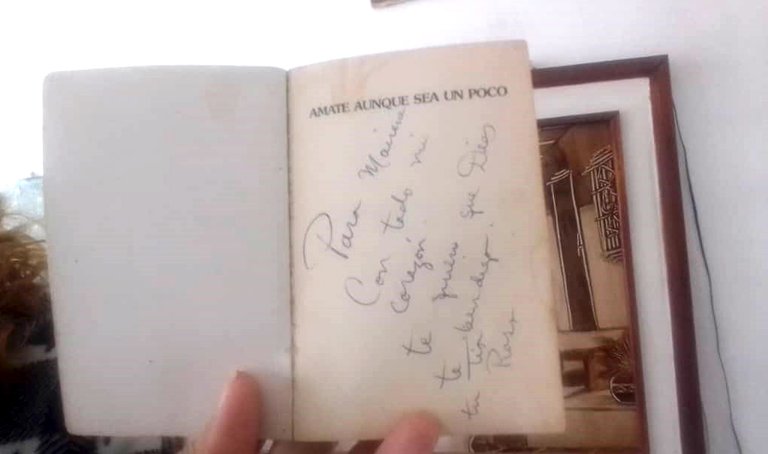 AMATE AUNQUE SEA UN POCO
Para Mairene
Con todo mi
corazón.
te quiero que Dios
te bendiga.
tu tia
Rosa